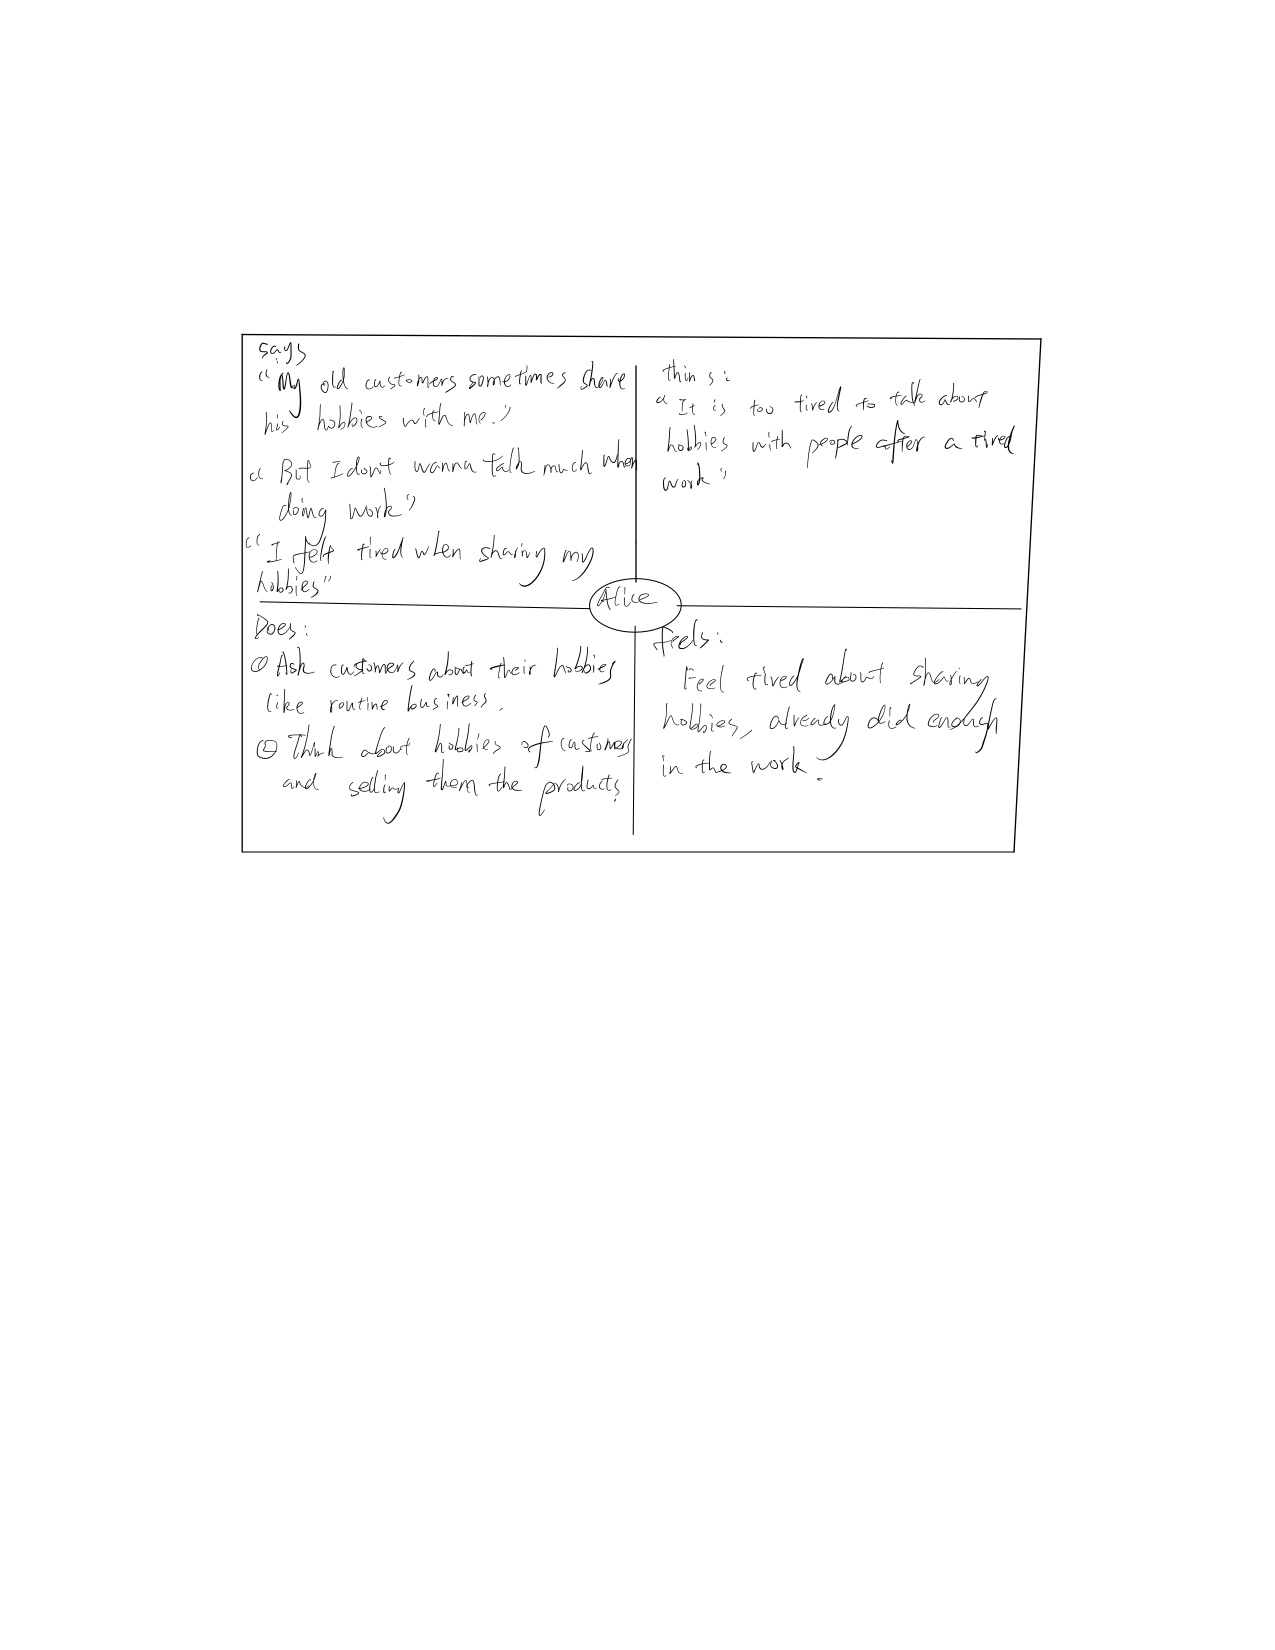 says
"My old customers sometimes share
his hobbies with me."
"But I don't wanna talk much when
doing work"
"I felt tired when sharing my
hobbies"
thins:
"It is too tired to talk about
hobbies with people after a tired
work"
Alice
Does:
① Ask customers about their hobbies
like routine business.
② Think about hobbies of customers
and selling them the products.
Feels:
Feel tired about sharing
hobbies, already did enough
in the work.